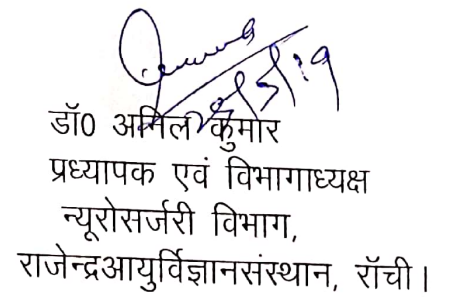 डॉ0 अनिल कुमार
प्रध्यापक एवं विभागाध्यक्ष
न्यूरोसर्जरी विभाग,
राजेन्द्रआयुर्विज्ञानसंस्थान, रॉची।